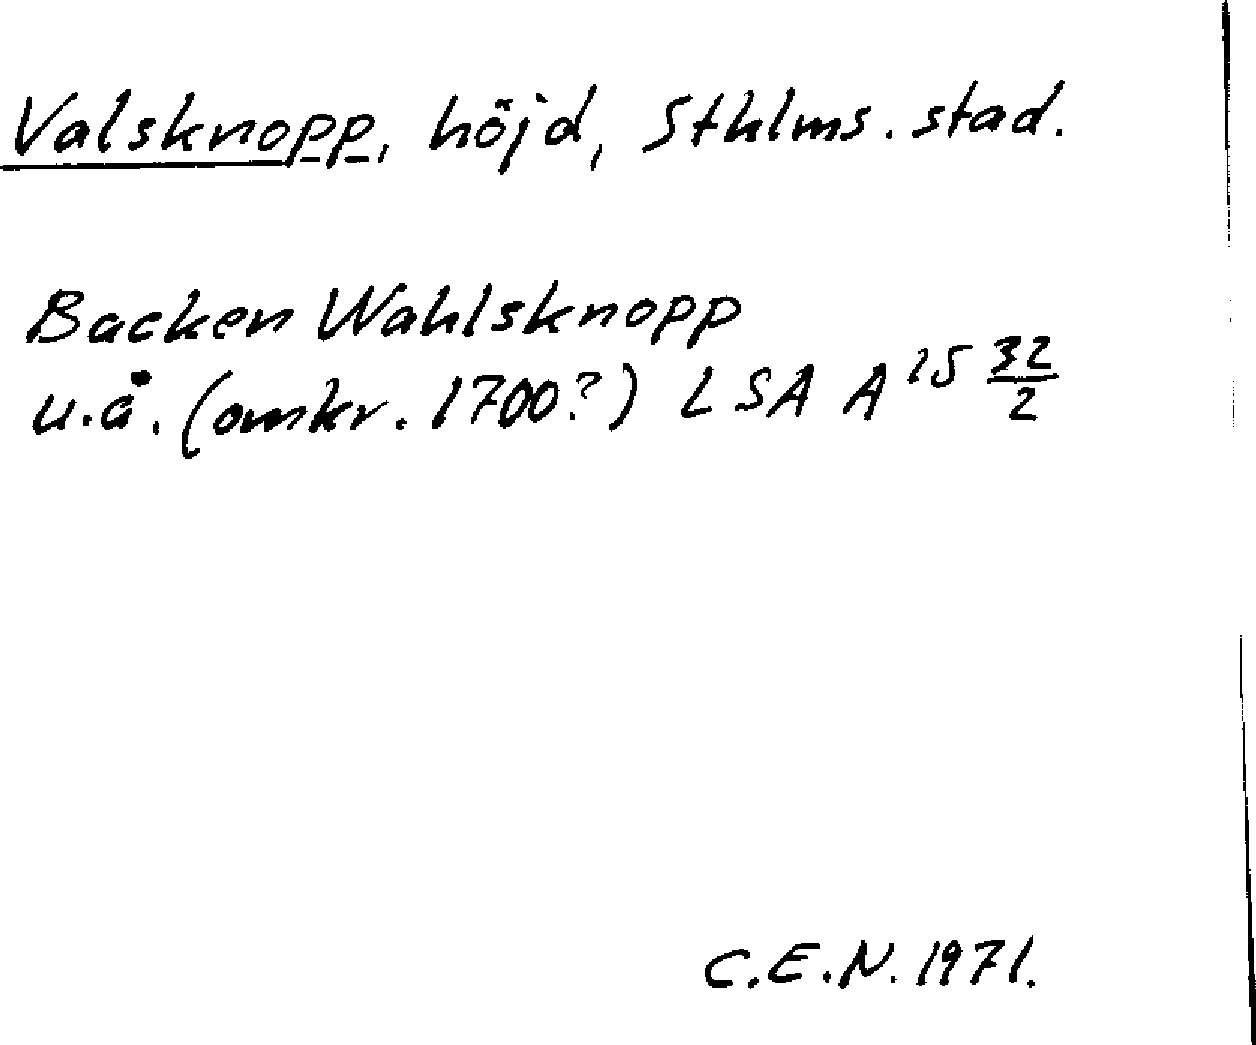 Valsknopp, höjd, Sthlms. stad.
Backen Wahlsknopp
u.å. (omkr. 1700?) LSA A 15 32/2
C.E.N. 1971.